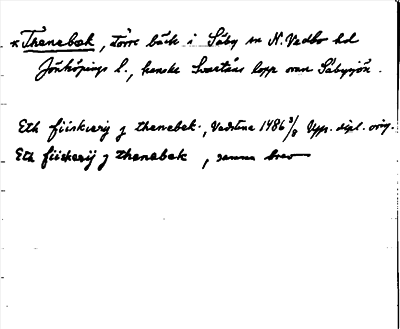 *Thenebæk, större bäck i Säby sn N. Vedbo hd
Jönköpings l., kanske Svartåns lopp ovan Säbysjön.
Eth fiiskerij j thenebek., Vadstena 1486 3/8 Upps. dipl. orig.
Eth fiiskerij j thenebek, samma brev